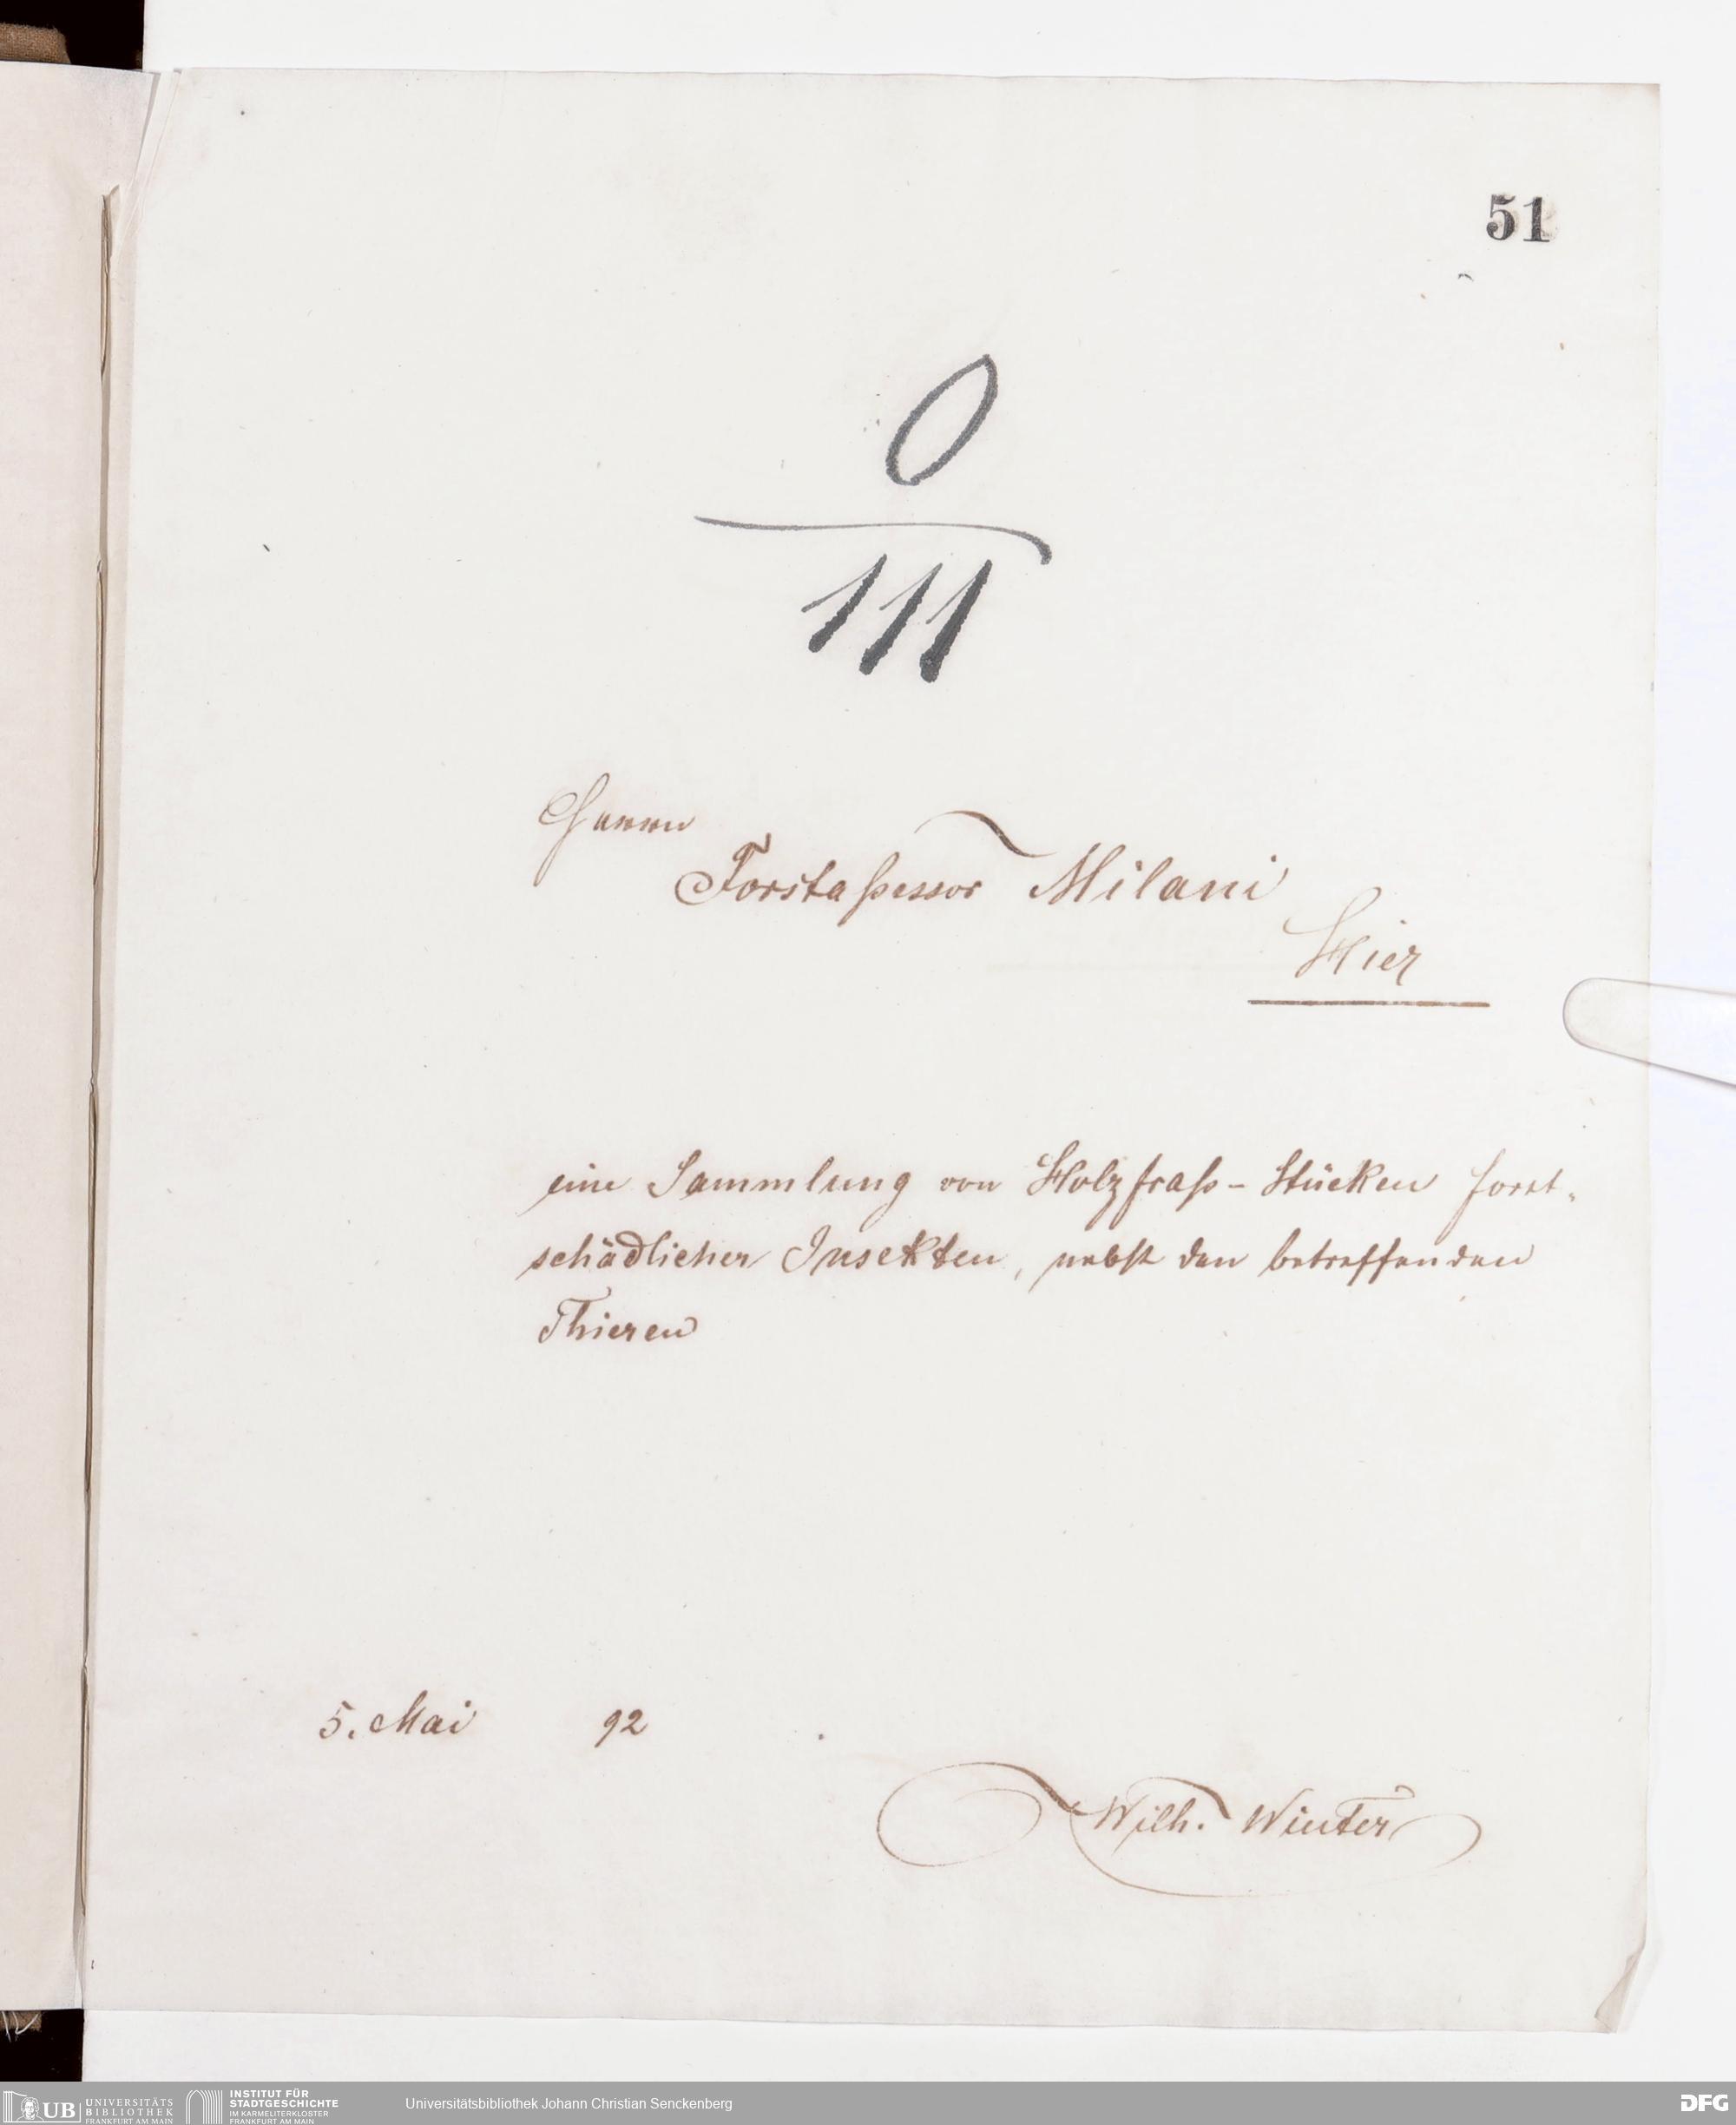 51
0
111
Herrn
Forstaßessor Milani
Hier
eine Sammlung von Holzfraß-Stücken forst-
schädlicher Insekten, nebst den betreffenden
Thieren
5. Mai 92
Wilh. Winter
UB UNIVERSITÄTS BIBLIOTHEK FRANKFURT AM MAIN
INSTITUT FÜR STADTGESCHICHTE IM KARMELITERKLOSTER FRANKFURT AM MAIN
Universitätsbibliothek Johann Christian Senckenberg
DFG